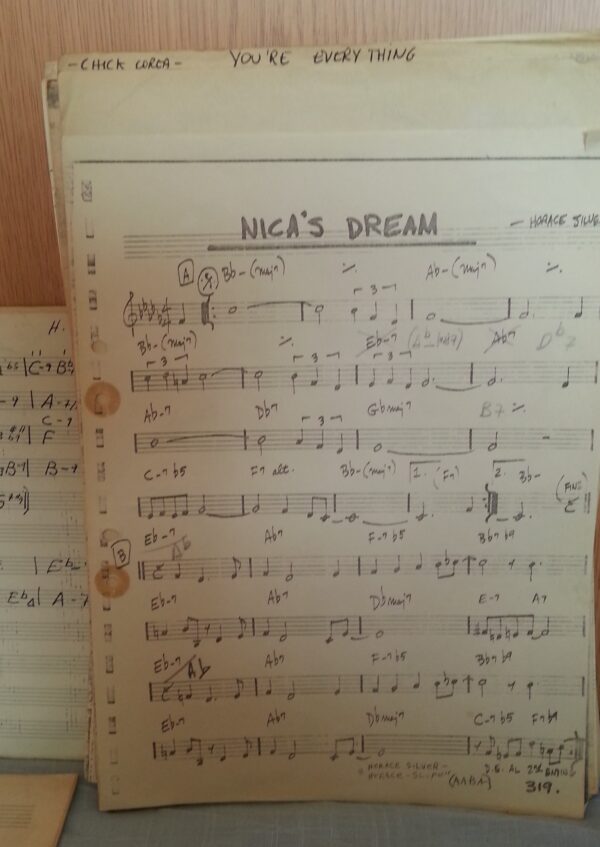 - CHICK COREA - YOU'RE EVERYTHING
NICA'S DREAM - HORACE SILVE
A Bb-(maj7) ٪ Ab-(maj7) ٪
3
Bb-(maj7) ٪ Eb-7 Ab7
3 3 3
Ab-7 Db7 Gbmaj7 B7 ٪
3
C-7 b5 F7 alt. Bb-(maj7) 1. (F7) 2. Bb-
(FINE)
B
Eb-7 Ab7 F-7 b5 Bb7 b9
Ab
Eb-7 Ab7 Dbmaj7 E-7 A7
Eb-7 Ab7 F-7 b5 Bb7 b9
Ab
Eb-7 Ab7 Dbmaj7 C-7 b5 F7 b9
HORACE SILVER-
D.S. AL 2nd ENDING
(AABA)
319.
H.
C-7 Bb
A-7
C-7
F
B-7 B-7
Eb-
Eb A-7